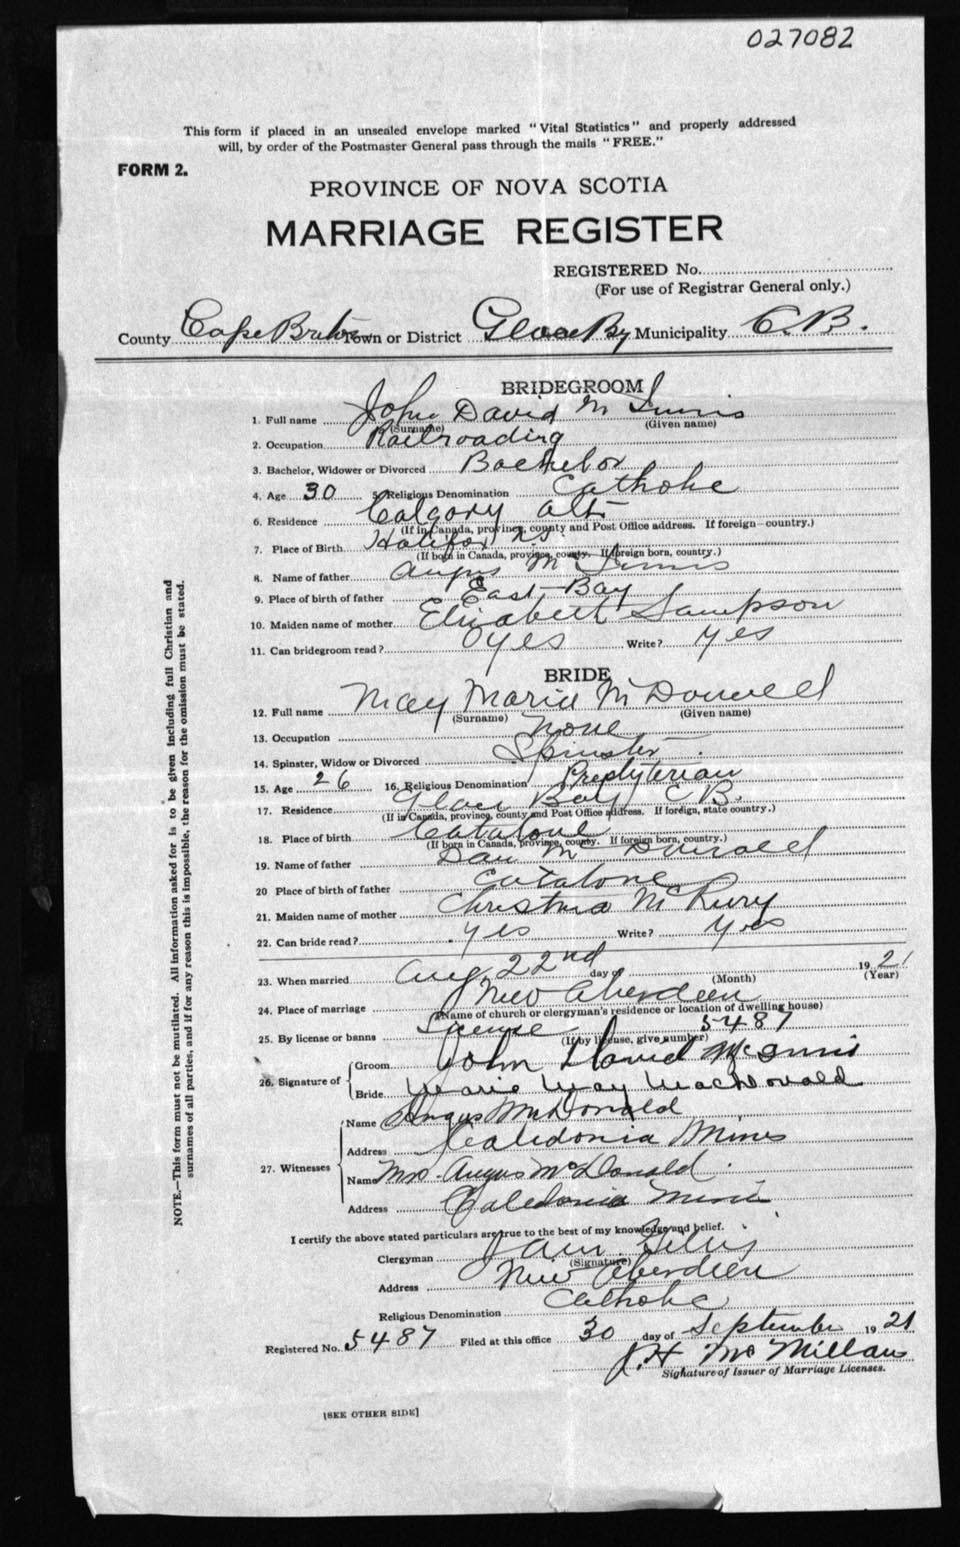 027082
This form if placed in an unsealed envelope marked "Vital Statistics" and properly addressed
will, by order of the Postmaster General pass through the mails "FREE."
FORM 2.
PROVINCE OF NOVA SCOTIA
MARRIAGE REGISTER
REGISTERED No.
(For use of Registrar General only.)
County Cape Breton Town or District Glace By Municipality C.B.
BRIDEGROOM
1. Full name John David McInnis
(Surname) (Given name)
2. Occupation Railroading
3. Bachelor, Widower or Divorced Bachelor
4. Age 30 5. Religious Denomination Catholic
6. Residence Calgary Alt
(If in Canada, province, county and Post Office address. If foreign—country.)
7. Place of Birth Halifax N.S.
(If born in Canada, province, county. If foreign born, country.)
8. Name of father Angus McInnis
9. Place of birth of father East Bay
10. Maiden name of mother Elizabeth Sampson
11. Can bridegroom read? yes Write? yes
BRIDE
12. Full name May Maria McDonald
(Surname) (Given name)
13. Occupation none
14. Spinster, Widow or Divorced Spinster
15. Age 26 16. Religious Denomination Presbyterian
17. Residence Glace Bay C.B.
(If in Canada, province, county and Post Office address. If foreign, state country.)
18. Place of birth Catalone
(If born in Canada, province, county. If foreign born, country.)
19. Name of father Dan McDonald
20 Place of birth of father Catalone
21. Maiden name of mother Christina McRury
22. Can bride read? yes Write? yes
23. When married Aug. 22nd day of (Month) 1921 (Year)
24. Place of marriage New Aberdeen
(Name of church or clergyman's residence or location of dwelling house)
25. By license or banns License 5487
(If by license, give number)
26. Signature of { Groom John David McInnis
Bride Marie May MacDonald
27. Witnesses { Name Angus McDonald
Address Caledonia Mines
Name Mrs. Angus McDonald
Address Caledonia Mines
I certify the above stated particulars are true to the best of my knowledge and belief.
Clergyman
(Signature)
Address New Aberdeen
Religious Denomination Catholic
Registered No. 5487 Filed at this office 30 day of September 1921
McMillan
Signature of Issuer of Marriage Licenses.
[SEE OTHER SIDE]
NOTE.—This form must not be mutilated. All information asked for is to be given including full Christian and
surnames of all parties, and if for any reason this is impossible, the reason for the omission must be stated.